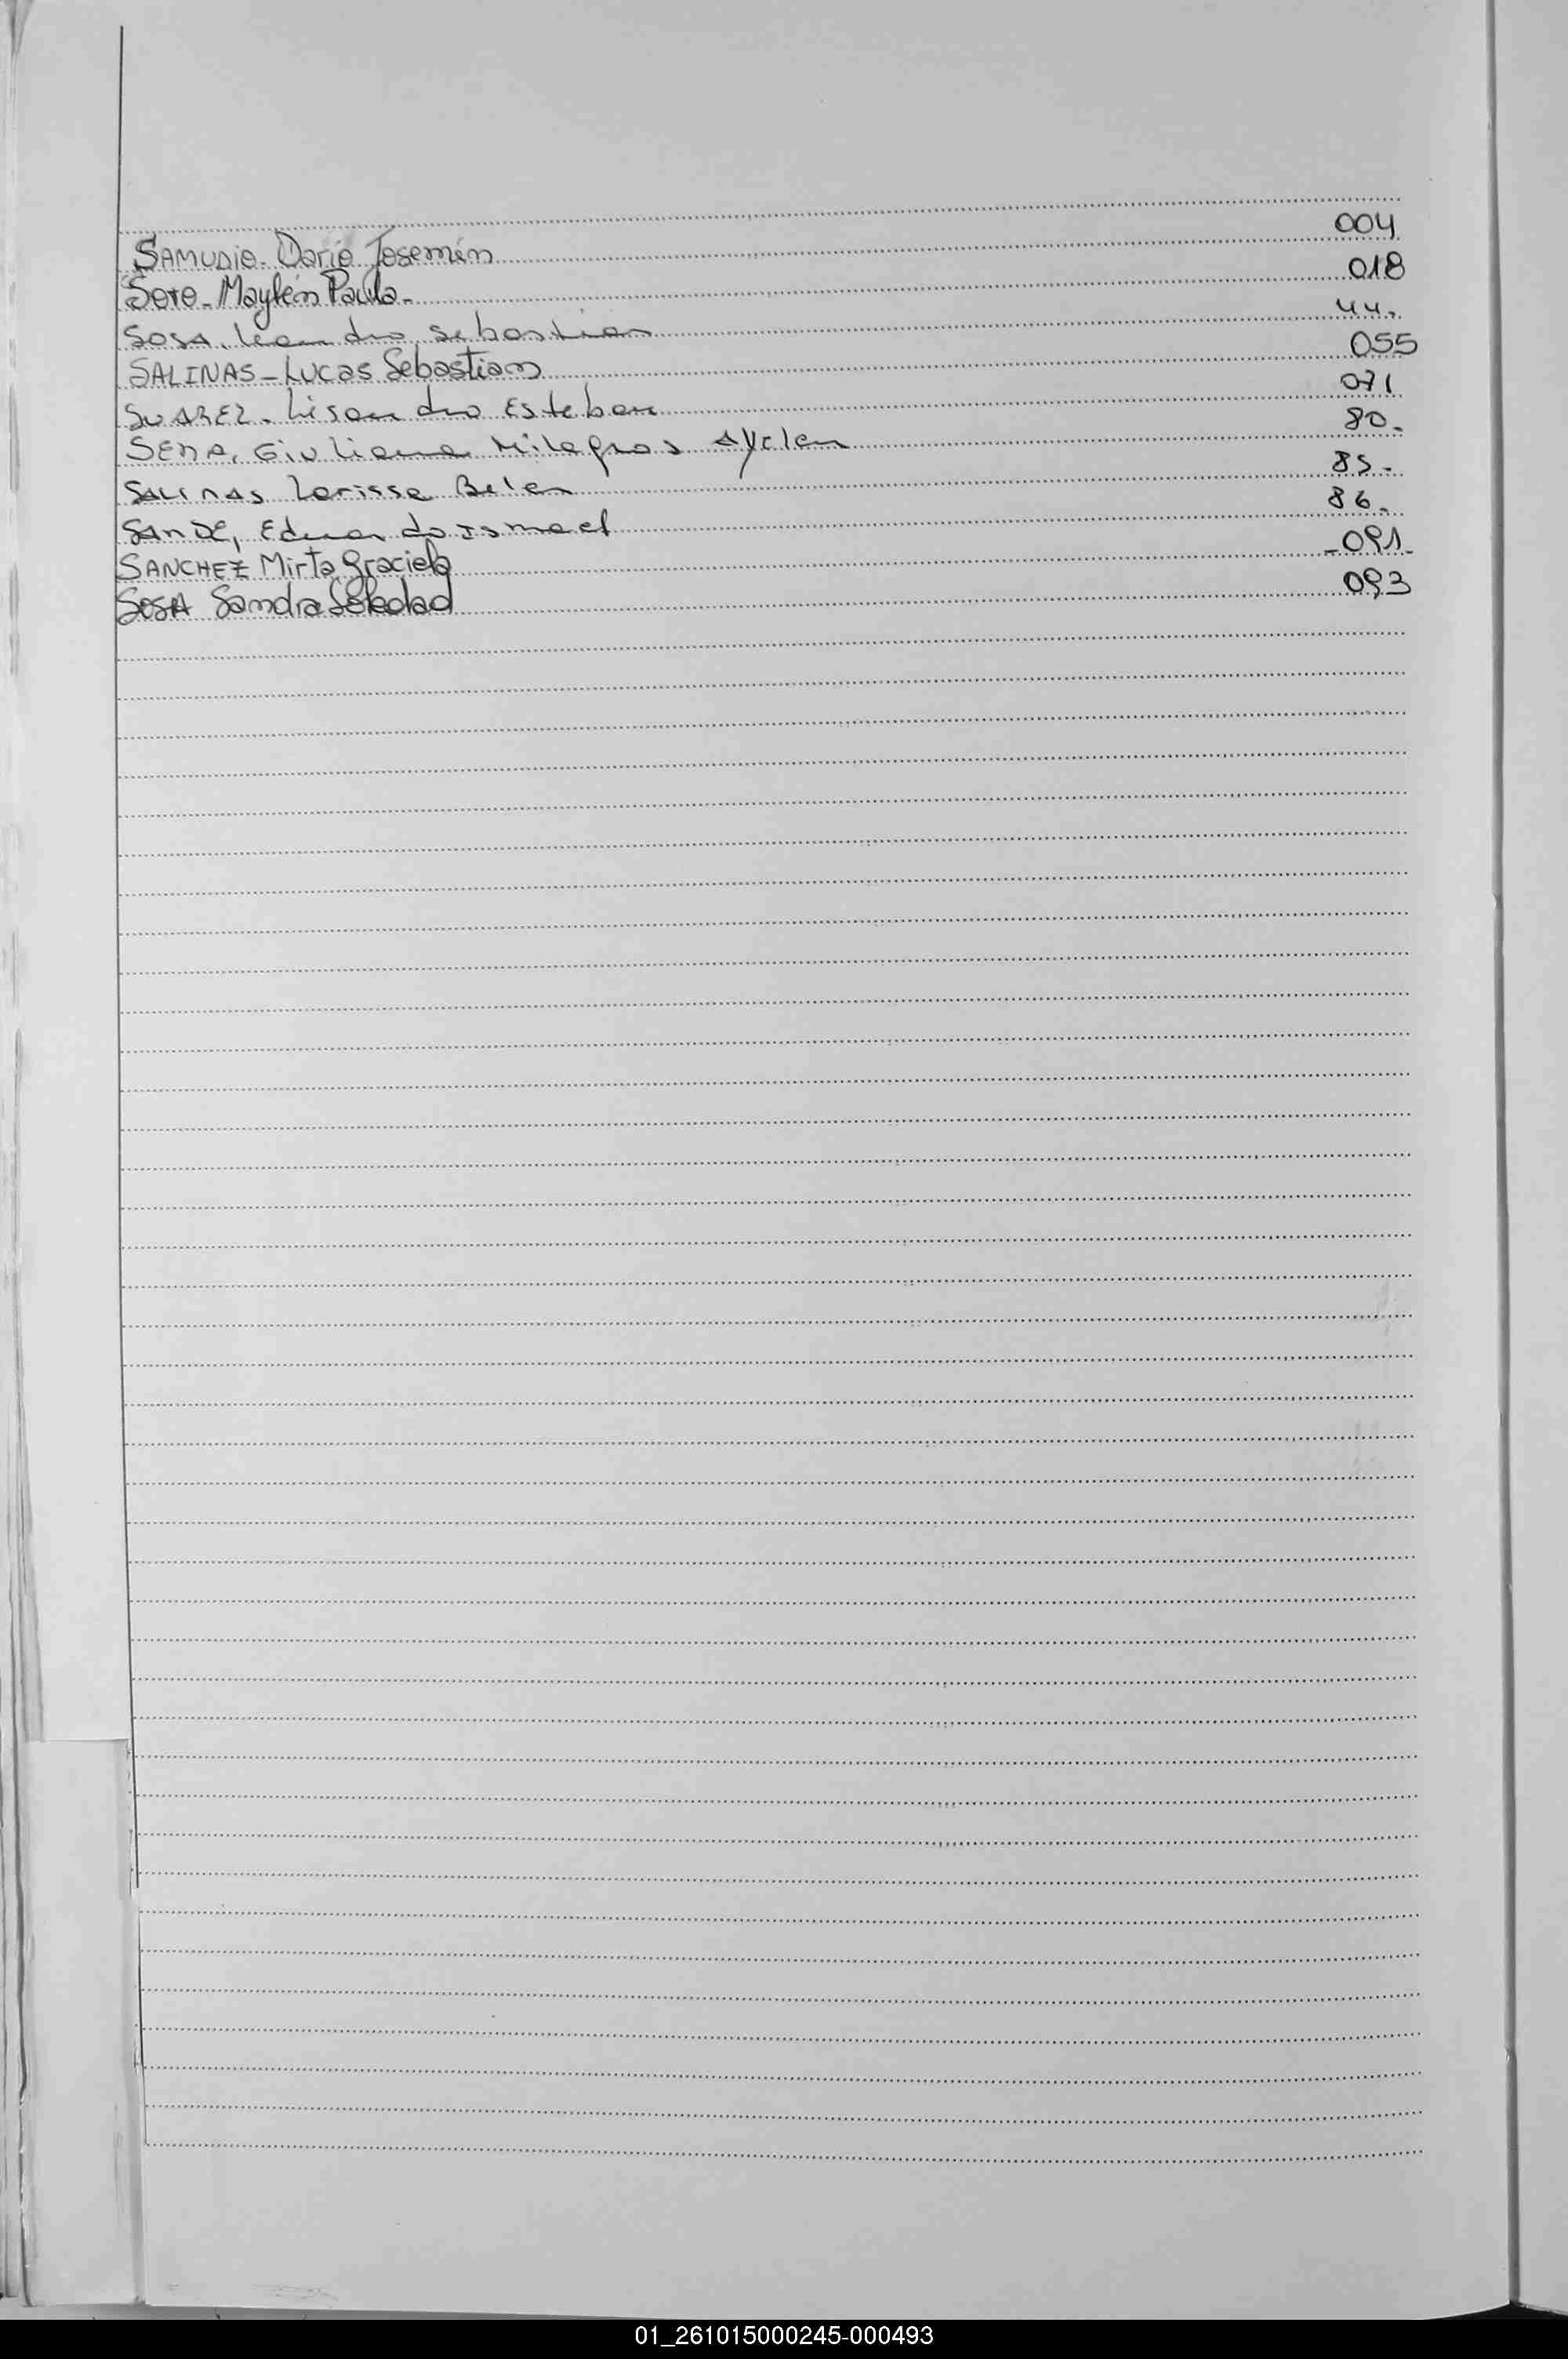 SAMUDIO - Darío Josemén 004
SOTO - Maylén Paula - 018
SOSA, Leandro Sebastian 44.
SALINAS - Lucas Sebastian 055
SUAREZ - Lisandro Esteban 071
SENA, Giuliana Milagros Aylen 80.
SALINAS Larissa Belen 85 -
SANDE, Eduardo Ismael 86.
SANCHEZ Mirta Graciela - 091 -
SOSA Sandra Soledad 093
01_261015000245-000493